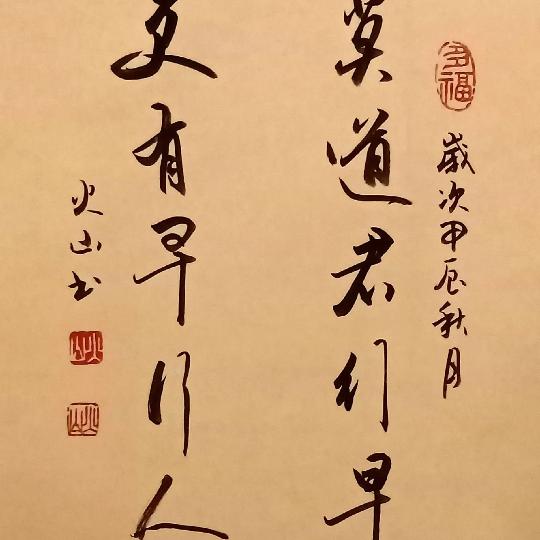 多福
歲次甲辰秋月
莫道君行早
更有早行人
火山书